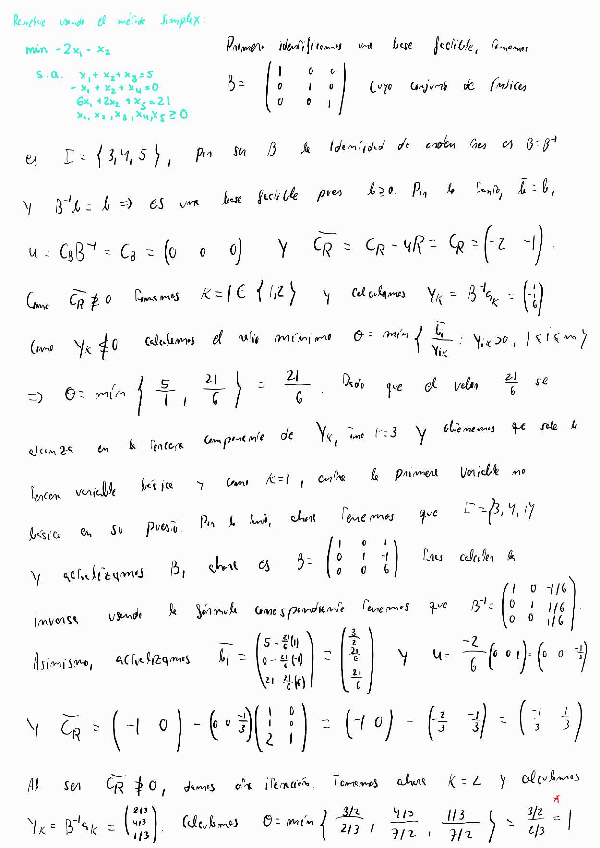 Resolver usando el método Simplex:
min -2x₁ - x₂
s.a. x₁ + x₂ + x₃ = 5
-x₁ + x₂ + x₄ = 0
6x₁ + 2x₂ + x₅ = 21
x₁, x₂, x₃, x₄, x₅ ≥ 0
Primero identificamos una base factible, tomamos
B = (1 0 0; 0 1 0; 0 0 1) cuyo conjunto de índices
es I = {3,4,5}, por ser B la identidad de orden tres es B = B⁻¹
y B⁻¹b = b => es una base factible pues b ≥ 0. Por lo tanto, b̄ = b,
u = C_B B⁻¹ = C_B = (0 0 0) y C̄_R = C_R - uR = C_R = (-2 -1).
Como C̄_R ≱ 0 tomamos K = 1 ∈ {1,2} y calculamos Y_K = B⁻¹a_K = (1; -1; 6)
Como Y_K ≰ 0 calculamos el ratio mínimo θ = mín { b̄ᵢ/Yᵢₖ : Yᵢₖ > 0, 1 ≤ i ≤ m }
=> θ = mín { 5/1, 21/6 } = 21/6. Dado que el valor 21/6 se
alcanza en la tercera componente de Y_K, r = 3 y obtenemos que sale la
tercera variable básica y como K = 1, entra la primera variable no
básica en su puesto. Por lo tanto, ahora tenemos que I = {3,4,1}
y actualizamos B, ahora es B = (1 0 1; 0 1 -1; 0 0 6) Tras calcular la
inversa usando la fórmula correspondiente tenemos que B⁻¹ = (1 0 -1/6; 0 1 1/6; 0 0 1/6).
Asimismo, actualizamos b̄₁ = (5 - 21/6(1); 0 - 21/6(-1); 21 - 21/6(6)) = (3/2; 21/6; 21/6) y u = -2/6 (0 0 1) = (0 0 -1/3)
y C̄_R = (-1 0) - (0 0 -1/3)(1 0; 1 0; 2 1) = (-1 0) - (-2/3 -1/3) = (-1/3 1/3)
Al ser C̄_R ≱ 0, damos otra iteración. Tomamos ahora K = 2 y calculamos
Y_K = B⁻¹a_K = (2/3; 4/3; 1/3). Calculamos θ = mín { 3/2 / 2/3, 4/3 / 7/2, 1/3 / 7/2 } = 3/2 / 2/3 *= 1